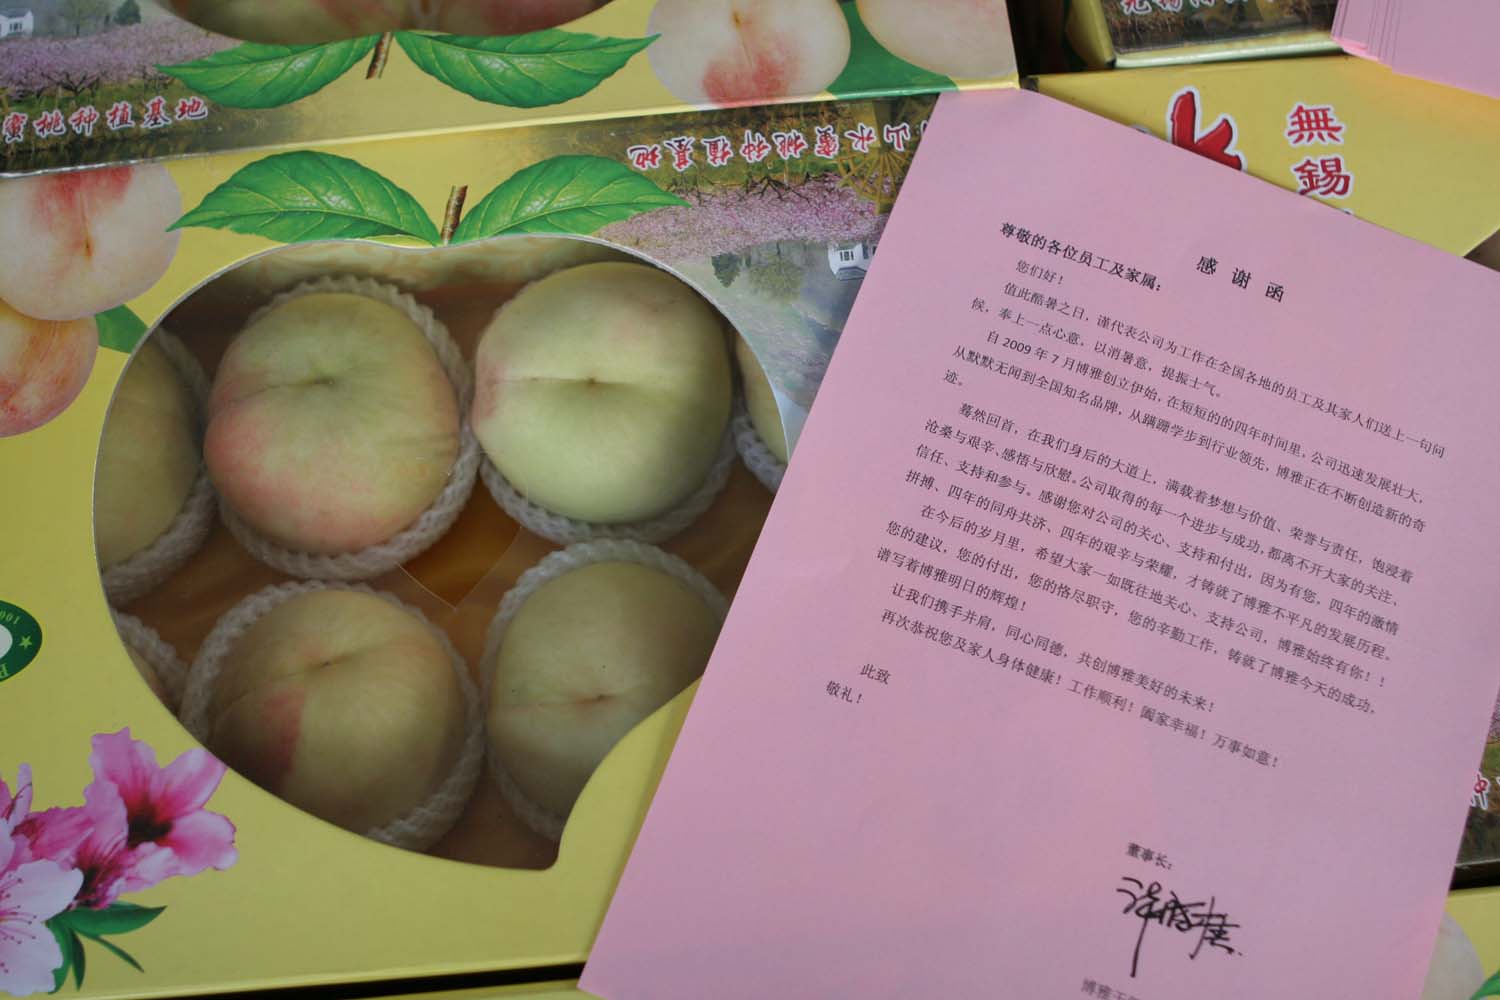 蜜桃种植基地
山水蜜桃种植基地
無錫
感谢函
尊敬的各位员工及家属：
您们好！
值此酷暑之日，谨代表公司为工作在全国各地的员工及其家人们送上一句问
候，奉上一点心意，以消暑意，提振士气。
自2009年7月博雅创立伊始，在短短的的四年时间里，公司迅速发展壮大，
从默默无闻到全国知名品牌，从蹒跚学步到行业领先，博雅正在不断创造新的奇
迹。
蓦然回首，在我们身后的大道上，满载着梦想与价值、荣誉与责任，饱浸着
沧桑与艰辛、感悟与欣慰。公司取得的每一个进步与成功，都离不开大家的关注、
信任、支持和参与。感谢您对公司的关心、支持和付出，因为有您，四年的激情
拼搏、四年的同舟共济、四年的艰辛与荣耀，才铸就了博雅不平凡的发展历程。
在今后的岁月里，希望大家一如既往地关心、支持公司，博雅始终有你！！
您的建议，您的付出，您的恪尽职守，您的辛勤工作，铸就了博雅今天的成功，
谱写着博雅明日的辉煌！
让我们携手并肩，同心同德，共创博雅美好的未来！
再次恭祝您及家人身体健康！工作顺利！阖家幸福！万事如意！
此致
敬礼！
董事长：